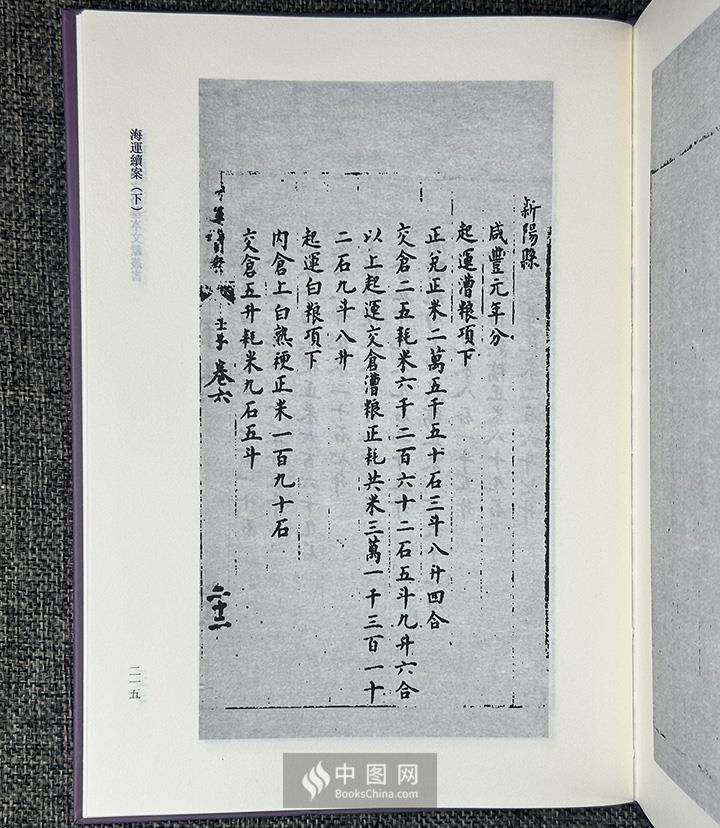 新陽縣
咸豐元年分
起運漕粮項下
正兌正米二萬五千五十石三斗八升四合
交倉二五耗米六千二百六十二石五斗九升六合
以上起運交倉漕粮正耗共米三萬一千三百一十
二石九斗八升
起運白粮項下
內倉上白熟粳正米一百九十石
交倉五升耗米九石五斗
卷六
二十三
海運續案（下）
二一五
中图网
BooksChina.com